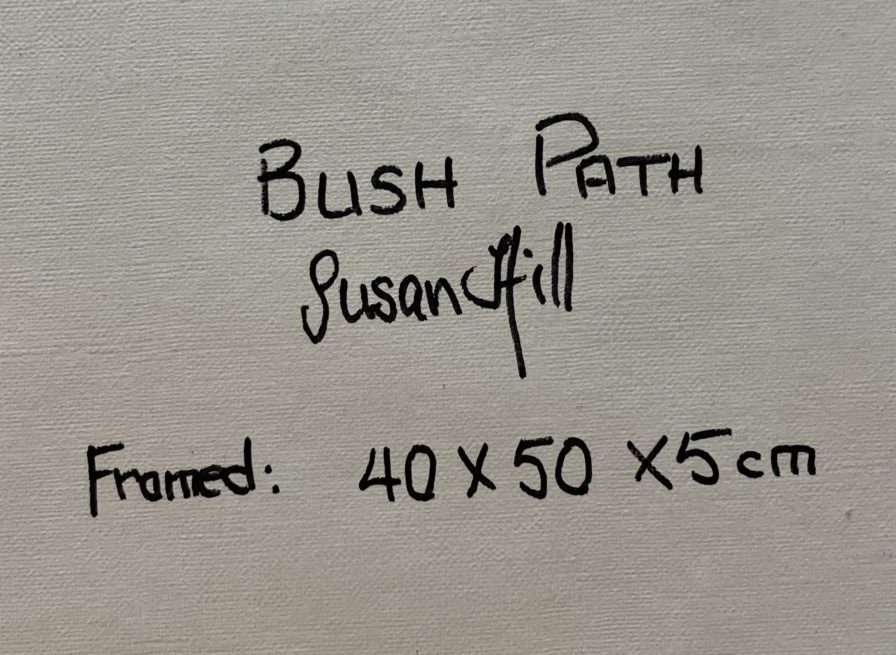 BUSH PATH
Susan Hill
Framed: 40 X 50 X 5 cm